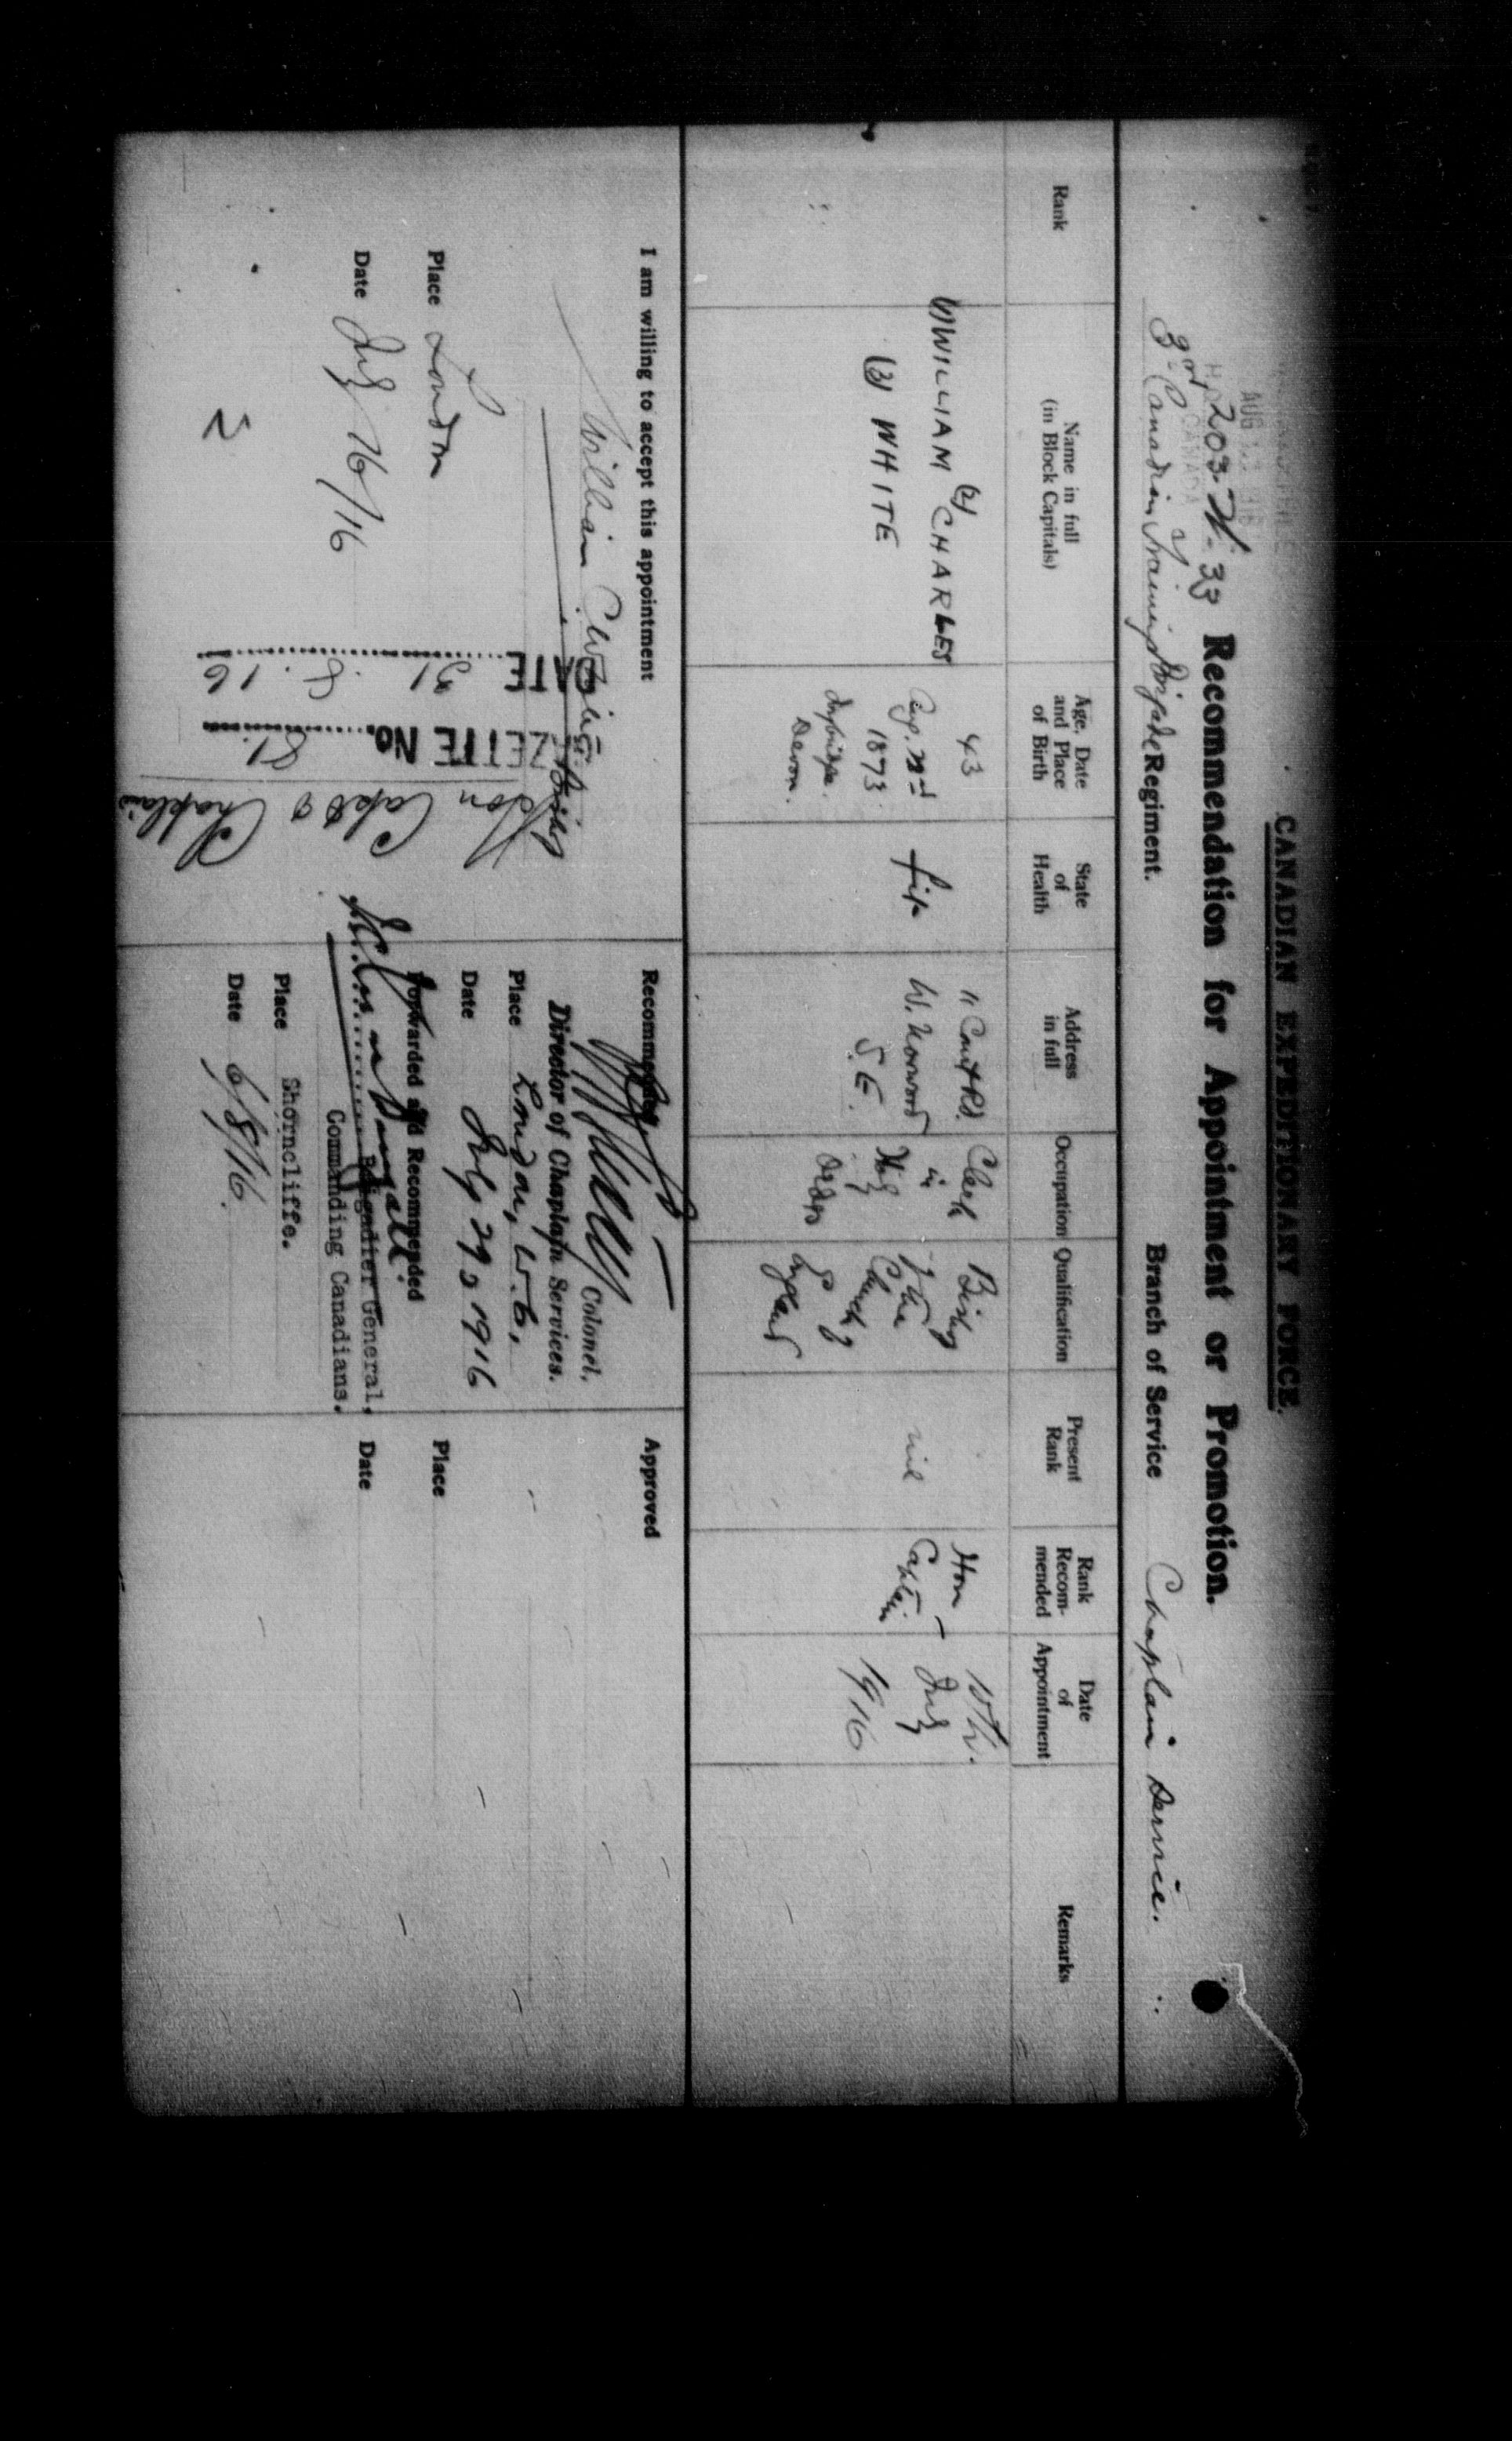 CANADIAN EXPEDITIONARY FORCE.
AUG
CANADA
203-W-33
Recommendation for Appointment or Promotion.
3rd Canadian Training Brigade Regiment.
Branch of Service Chaplain Service.
Rank
Name in full
(in Block Capitals)
Age, Date
and Place
of Birth
State
of
Health
Address
in full
Occupation
Qualification
Present
Rank
Rank
Recom-
mended
Date
of
Appointment
Remarks
(1) WILLIAM (2) CHARLES
(3) WHITE
43
Aug. 22nd
1873.
Ivybridge.
Devon.
fit
11 Court Rd.
W. Norwood
S.E.
Clerk
in
Holy
Orders
Bishop
of the
Church of
England
nil
Hon -
Captain
10th.
July
1916
I am willing to accept this appointment
William C. White
Bishop
Place London
Date July 26/16
2
DATE 31. 8. 16
ZETTE No. 81.
Hon Capt &
Chaplain
Recommended
Colonel.
Director of Chaplain Services.
Place London, W.C.,
Date July 29, 1916
Forwarded and Recommended
Brigadier General,
Commanding Canadians.
Place Shorncliffe.
Date 6/8/16.
Approved
Place
Date